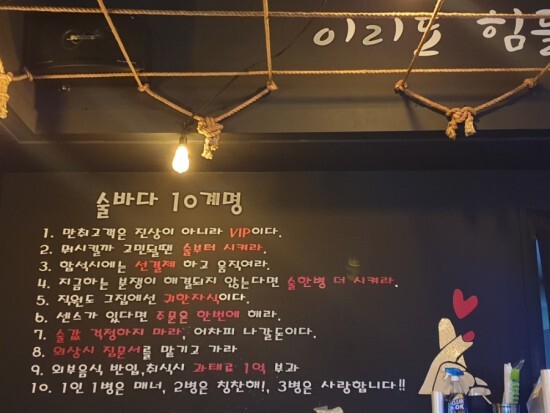 이리도 힘들
술바다 10계명
1. 만취고객은 진상이 아니라 VIP이다.
2. 뭐시킬까 고민될땐 술부터 시켜라.
3. 합석시에는 선결제 하고 움직여라.
4. 지금하는 분쟁이 해결되지 않는다면 술한병 더 시켜라.
5. 직원도 그집에선 귀한자식이다.
6. 센스가 있다면 주문은 한번에 해라.
7. 술값 걱정하지 마라, 어차피 나갈돈이다.
8. 외상시 집문서를 맡기고 가라
9. 외부음식 반입,취식시 과태료 1억 부과
10. 1인 1병은 매너, 2병은 칭찬해!, 3병은 사랑합니다!!